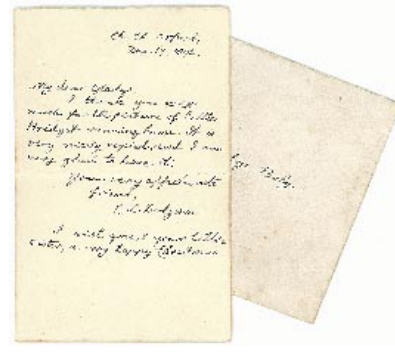 Ch. Ch. Oxford,
My dear Gladys,
I thank you very
much for the picture of
winning home. It is
very nicely copied, and I am
very glad to have it.
Your very affectionate
friend,
C. L. Dodgson
I wish you, & your little
sister, a very happy Christmas